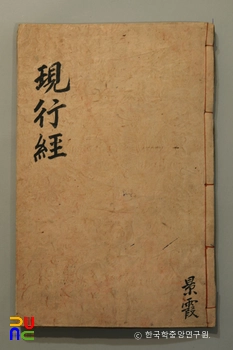 現行經
景霞
© 한국학중앙연구원